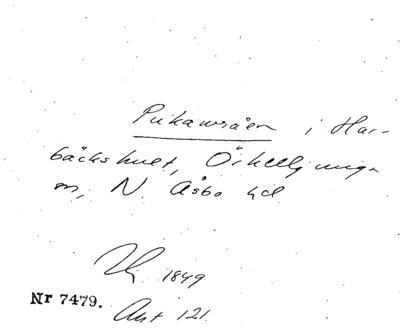 Pukamsråen i Har-
bäckshult, Örkelljunga
sn, N. Åsbo hd
1849
Nr 7479. Akt 121.